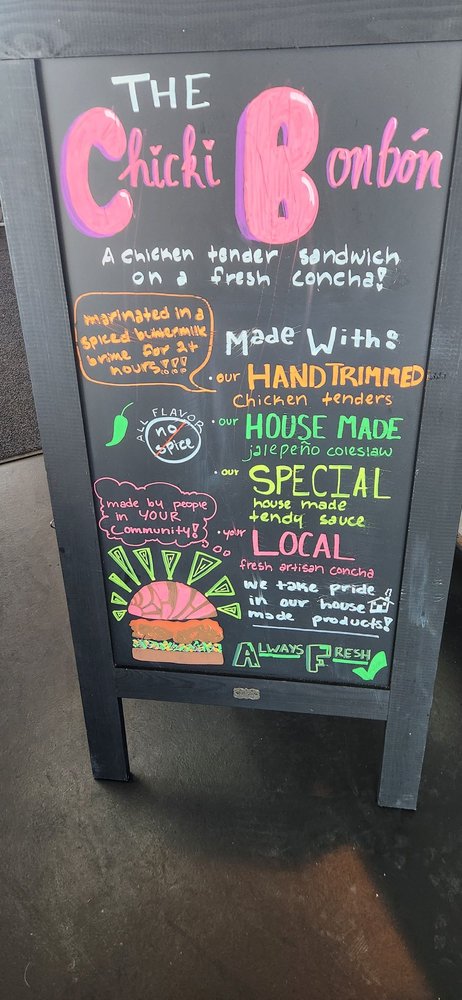 THE
Chicki Bonbón
A chicken tender sandwich
on a fresh concha!
marinated in a
spiced buttermilk
brine for 24
hours!!!
Made With:
• our HAND TRIMMED
chicken tenders
ALL FLAVOR
no
spice
• our HOUSE MADE
jalepeño coleslaw
• our SPECIAL
house made
tendy sauce
made by people
in YOUR
Community!
• your LOCAL
fresh artisan concha
we take pride
in our house
made products!
ALWAYS FRESH